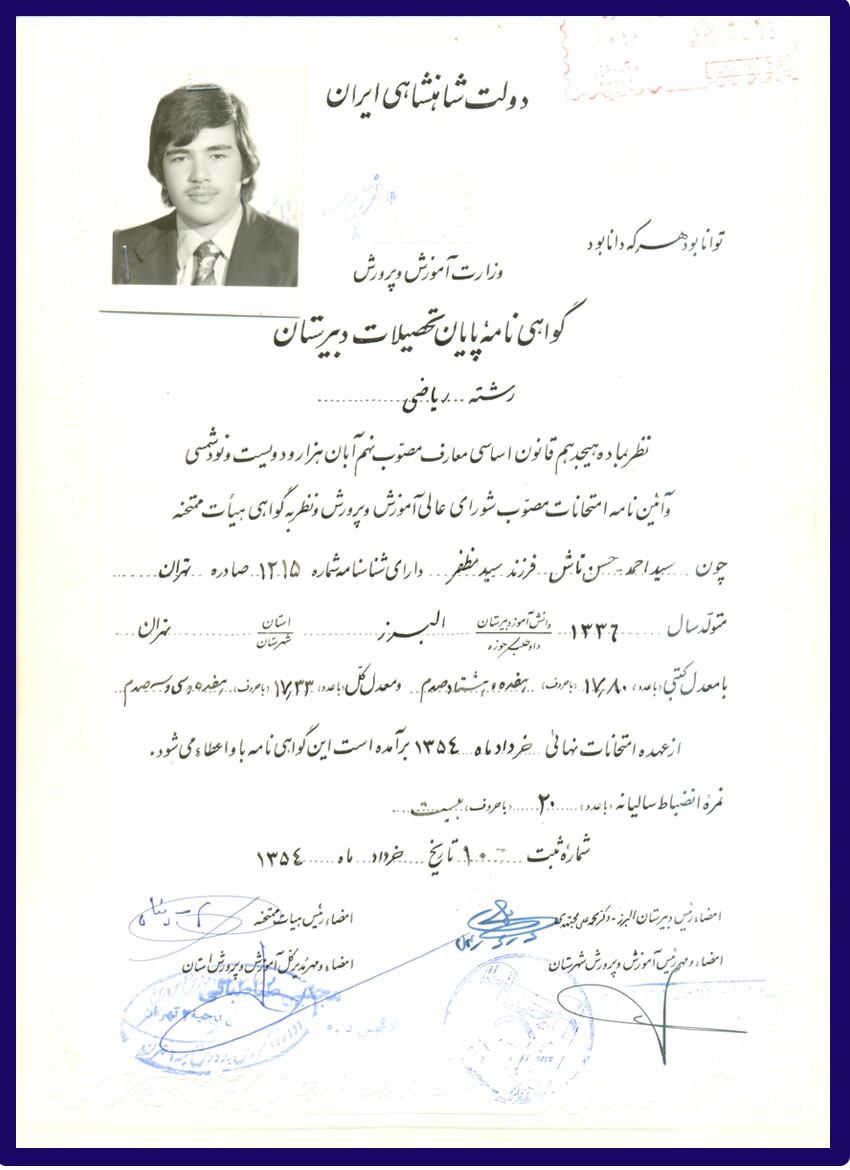 دولت شاهنشاهی ایران
توانا بود هر که دانا بود
وزارت آموزش و پرورش
گواهی نامهٔ پایان تحصیلات دبیرستان
رشته ... ریاضی
نظر بماده هیجدهم قانون اساسی معارف مصوّب نهم آبان هزار و دویست و نود شمسی
و آئین نامه امتحانات مصوّب شورای عالی آموزش و پرورش و نظر به گواهی هیأت ممتحنه
چون سید احمد حسن تاش فرزند سید مظفر دارای شناسنامه شماره ۱۲۱۵ صادره تهران
متولّد سال ۱۳۳۶ دانش آموز دبیرستان داوطلب حوزه البرز استان شهرستان تهران
با معدل کتبی (با عدد) ۱۷٫۸۰ (با حروف) هفده و هشتاد صدم و معدل کلّ (با عدد) ۱۷٫۳۳ (با حروف) هفده و سی و سه صدم
از عهده امتحانات نهائی خرداد ماه ۱۳۵۴ برآمده است این گواهی نامه باو اعطاء می شود.
نمرهٔ انضباط سالیانه (با عدد) ۲۰ (با حروف) بیست
شمارهٔ ثبت تاریخ خرداد ماه ۱۳۵۴
امضاء رئیس دبیرستان البرز - دکتر محمد علی مجتهدی
امضاء رئیس هیات ممتحنه
امضاء و مهر رئیس آموزش و پرورش شهرستان
امضاء و مهر مدیر کلّ آموزش و پرورش استان